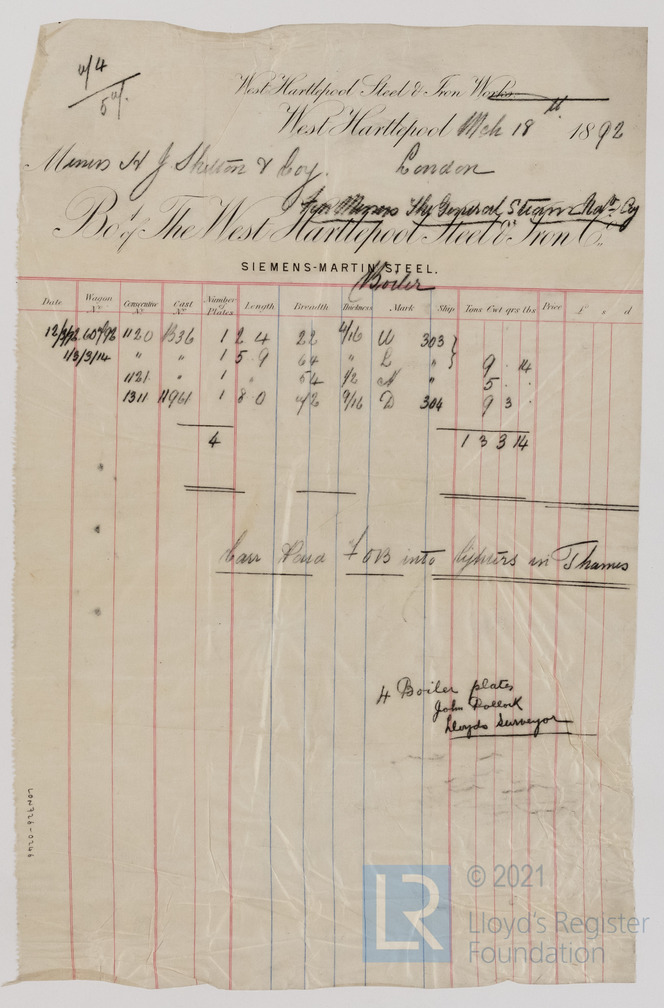 11/4
5/-
West Hartlepool Steel & Iron Works
West Hartlepool Mch 18th 1892
Messrs H J Skelton & Coy. London
for Messrs The General Steam Navn Coy
Bot of The West Hartlepool Steel & Iron Co.
SIEMENS-MARTIN STEEL.
Boiler
Date Wagon No. Consecutive No. Cast No. Number of Plates Length Breadth Thickness Mark Ship Tons Cwt qrs lbs Price £ s d
1120 B36 1 2 4 22 W 303
1/3/3/14 " " 1 5 9 64 " L " 9 . 14
1121 " 1 " 54 1/2 N " 5 . .
1311 11961 1 8 0 9/16 D 304 9 3 .
4 1 3 3 14
Carr Paid FOB into lighters in Thames
4 Boiler plates
John Pollock
Lloyds Surveyor
LON926-0246
LR
© 2021
Lloyd's Register
Foundation